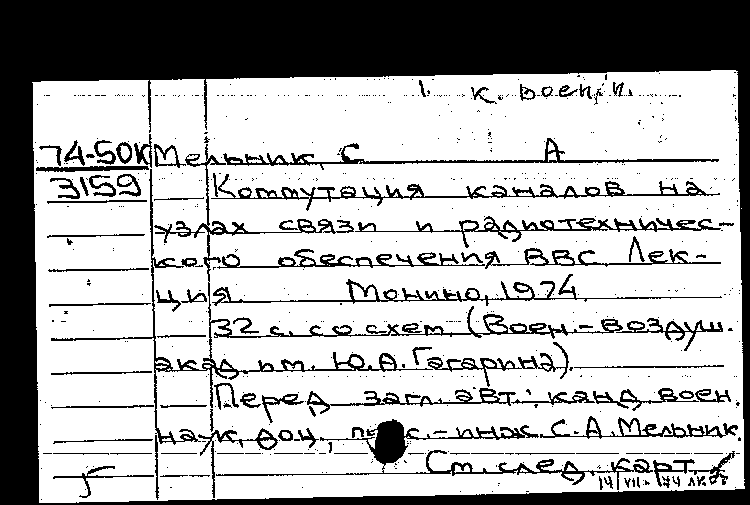 1. к. воен. п.
74-50К Мельник, С А
3159 Коммутация каналов на
узлах связи и радиотехничес-
кого обеспечения ВВС Лек-
ция. Монино, 1974.
32 с. со схем. (Воен.-воздуш.
акад. им. Ю.А. Гагарина).
Перед загл. авт.: канд. воен.
наук, доц., с.-инж. С.А. Мельник.
См. след. карт.
14/VII-74